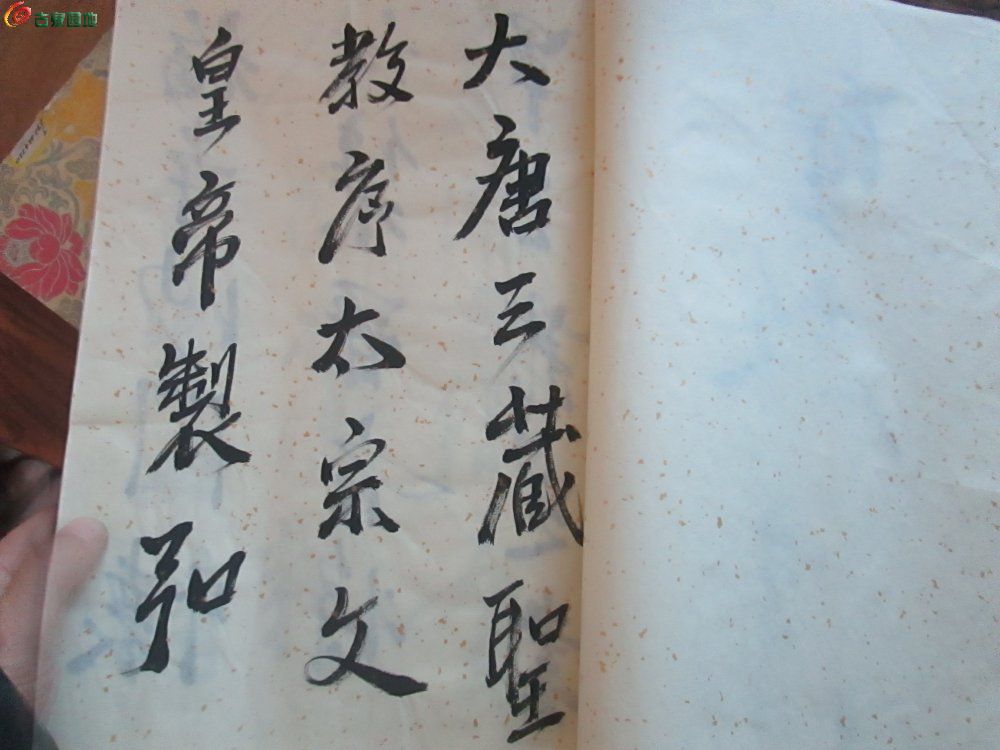 大唐三藏聖
教序太宗文
皇帝製弘
古泉园地